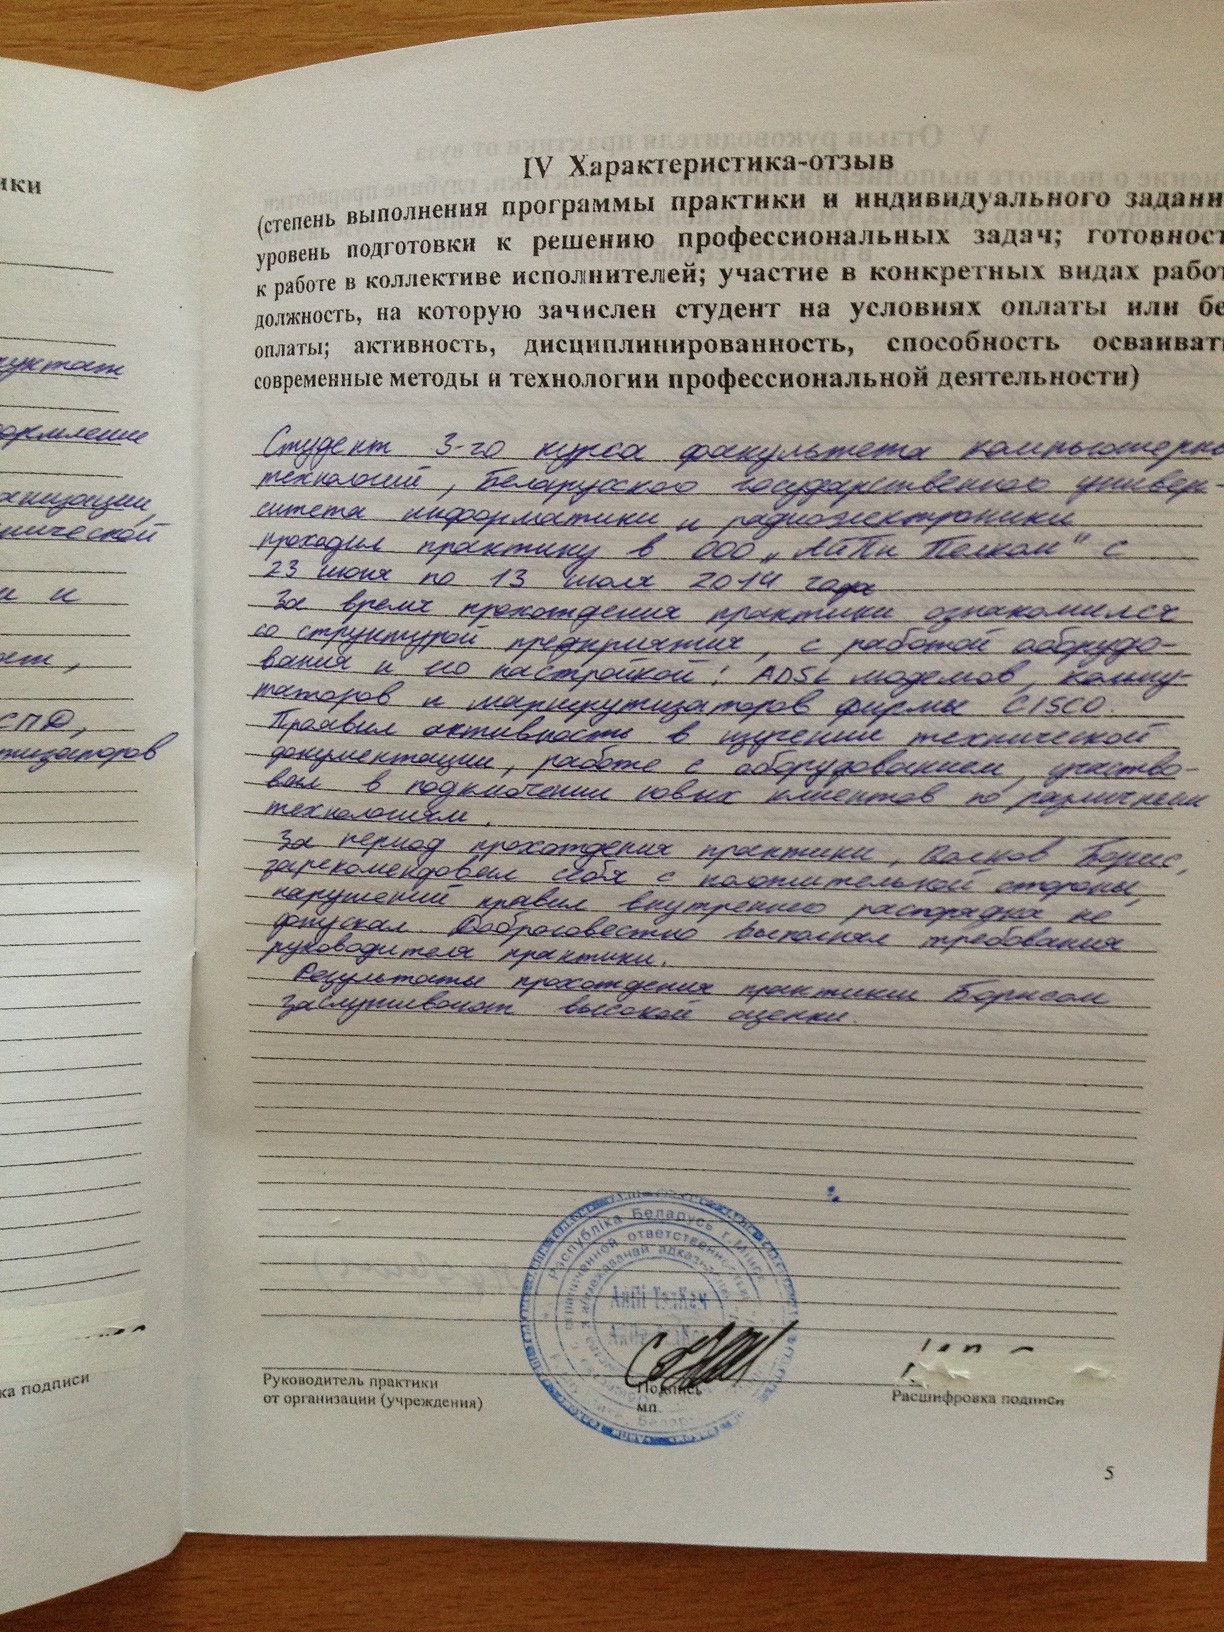 ики
уктат
ормление
анизации,
нической
и и
СПД,
тизаторов
ка подписи
IV Характеристика-отзыв
(степень выполнения программы практики и индивидуального задани
уровень подготовки к решению профессиональных задач; готовност
к работе в коллективе исполнителей; участие в конкретных видах работ
должность, на которую зачислен студент на условиях оплаты или бе
оплаты; активность, дисциплинированность, способность осваиват
современные методы и технологии профессиональной деятельности)
Студент 3-го курса факультета компьютерн
технологий, Беларусского государственного универ-
ситета информатики и радиоэлектроники
проходил практику в ООО „АйПи Телком" с
23 июня по 13 июля 2014 года
За время прохождения практики ознакомился
со структурой предприятия, с работой оборудо-
вания и его настройкой: ADSL модемов, комму-
таторов и маршрутизаторов фирмы CISCO.
Проявил активность в изучении технической
документации, работе с оборудованием, участво-
вал в подключении новых клиентов по различным
технологиям.
За период прохождения практики, Волков Борис,
зарекомендовал себя с положительной стороны,
нарушений правил внутреннего распорядка не
допускал. Добросовестно выполнял требования
руководителя практики.
Результаты прохождения практики Борисом
заслуживают высокой оценки.
Рэспубліка Беларусь г. Мінск
ограниченной ответственностью
абмежаванай адказнасцю
АйПі ТэлКам
АйПи ТелКом
Руководитель практики
от организации (учреждения)
Подпись
мп.
Расшифровка подписи
5